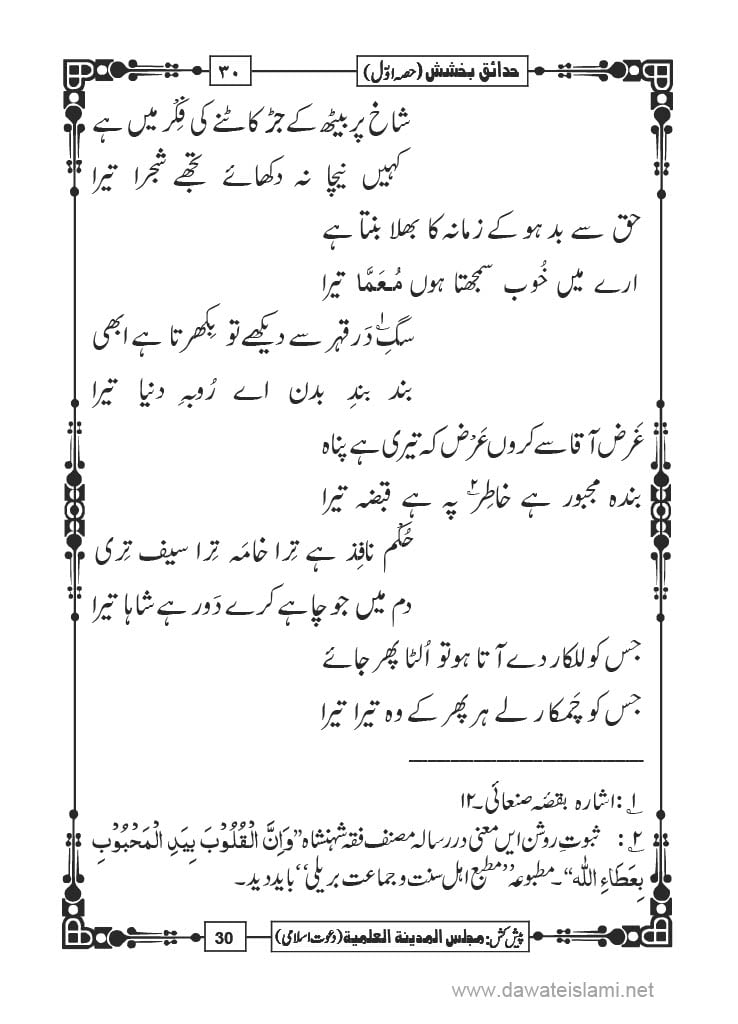 حدائق بخشش (حصہ اوّل)
۳۰
شاخ پر بیٹھ کے جڑ کاٹنے کی فِکْر میں ہے
کہیں نیچا نہ دکھائے تجھے شجرا تیرا
حق سے بد ہو کے زمانہ کا بھلا بنتا ہے
ارے میں خُوب سمجھتا ہوں مُعَمَّا تیرا
سگِ دَر قہر سے دیکھے تو بِکھرتا ہے ابھی
بند بندِ بدن اے رُوبہِ دنیا تیرا
غَرَض آقا سے کروں عَرْض کہ تیری ہے پناہ
بندہ مجبور ہے خاطِر۲ پہ ہے قبضہ تیرا
حُکْم نافِذ ہے تِرا خامَہ تِرا سیف تِری
دم میں جو چاہے کرے دَور ہے شاہا تیرا
جس کو للکار دے آتا ہو تو اُلٹا پھر جائے
جس کو چَمکار لے ہر پھر کے وہ تیرا تیرا
۱: اشارہ بقصّہ صنعائی۔۱۲
۲: ثبوت روشن ایں معنی در رسالہ مصنف فقہ شہنشاہ ”وَاِنَّ الْقُلُوْبَ بِیَدِ الْمَحْبُوْبِ
بِعَطَاءِ اللّٰه“۔ مطبوعہ ”مطبع اہل سنت و جماعت بریلی“ باید دید۔
پیش کش: مجلس المدینة العلمیة (دعوت اسلامی)
30
www.dawateislami.net